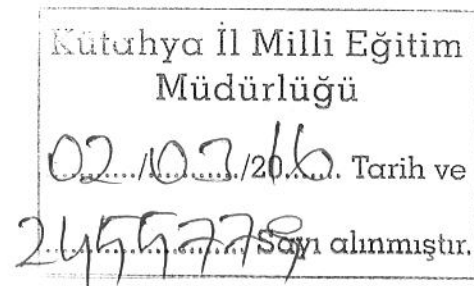 Kütahya İl Milli Eğitim
Müdürlüğü
02/03/2016 Tarih ve
Sayı alınmıştır.